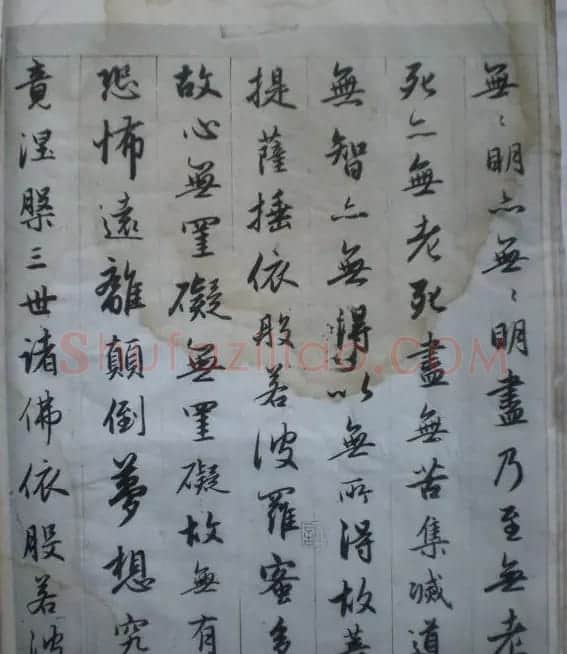 無〻明亦無〻明盡乃至無老
死亦無老死盡無苦集滅道
無智亦無得以無所得故菩
提薩埵依般若波羅蜜多
故心無罣礙無罣礙故無有
恐怖遠離顛倒夢想究
竟涅槃三世諸佛依般若波
Shufaziliao.COM